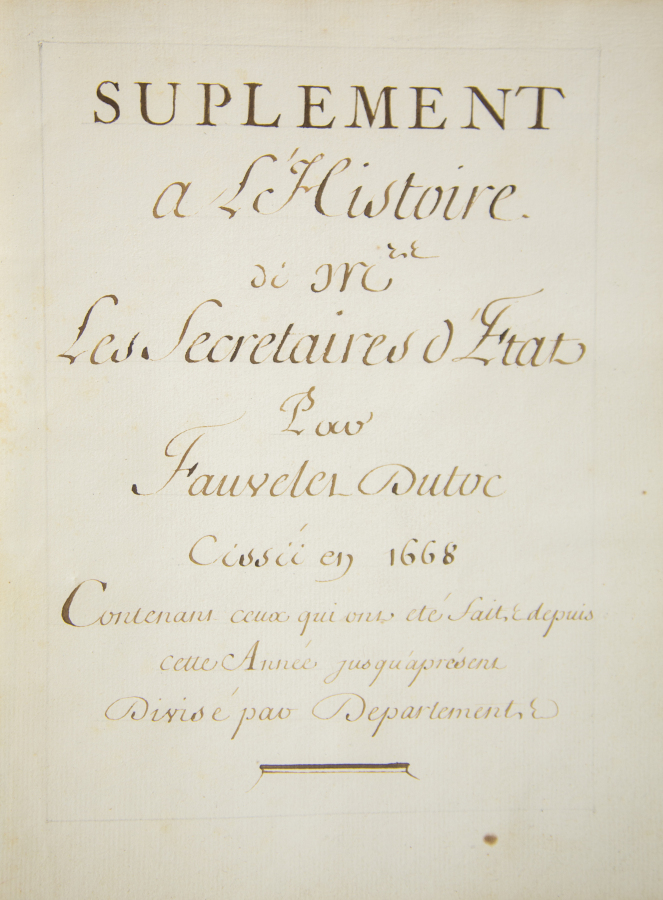 SUPLEMENT
a L'Histoire.
de Mrs
Les Secretaires d'Etat
Par
Fauvelet Dutoc
Cessée en 1668
Contenant ceux qui ont eté faits depuis
cette Année jusqu'aprésent
Divisé par Departements